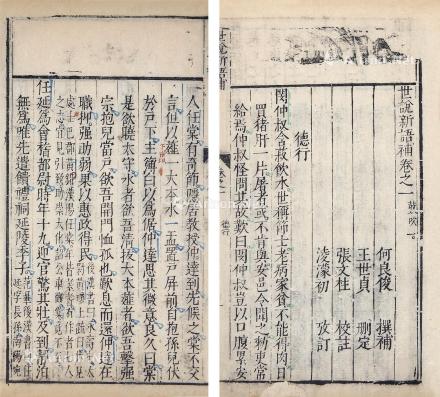 世說新語補卷之一
何良俊 撰補
王世貞 刪定
張文柱 校註
凌濛初 攷訂
德行
閔仲叔含菽飲水世稱節士老病家貧不能得肉日
買猪肝一片屠者或不肯與安邑令聞之勑吏常
給焉仲叔怪問其故歎曰閔仲叔豈以口腹累安
世說新語補
卷之一
德行
人任棠有奇節隱居教授仲達到先候之棠不交
言但以薤一大本水一盂置戶屏前自抱孫兒伏
於戶下主簿白以爲倨仲達思其微意良久曰棠
是欲曉太守水者欲吾清拔大本薤者欲吾擊強
宗抱兒當戶欲吾開門恤孤也歎息而還仲達在
職抑强助弱果以惠政得民
任延爲會稽都尉時年十九迎官驚其壯及到靜泊
無爲唯先遣饋禮祠延陵季子